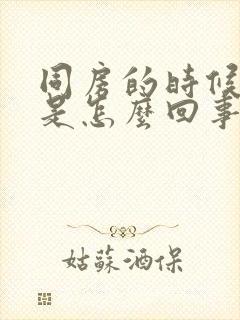 同房的時候
是怎麼回事
姑蘇酒保